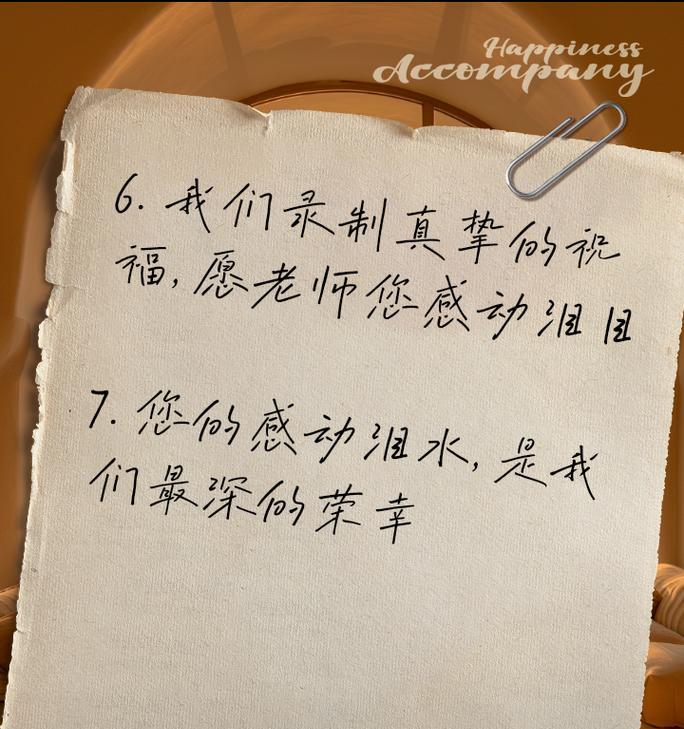 Happiness
Accompany
6. 我们录制真挚的祝
福,愿老师您感动泪目
7. 您的感动泪水,是我
们最深的荣幸